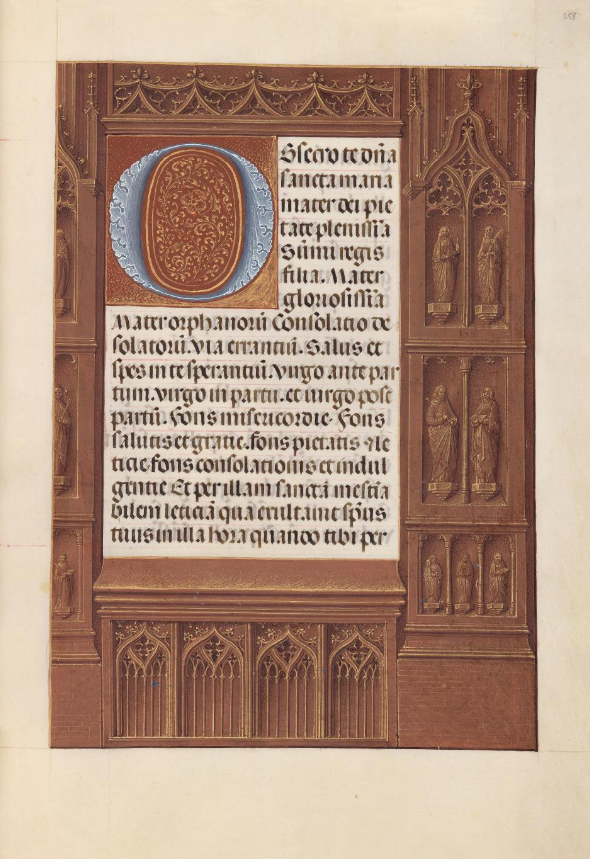 258
Obsecro te dn̄a
sancta maria
mater dei pie
tate plenissīa
Sūmi regis
filia. Mater
gloriosissīa
Mater orphanorū Consolatio de
solatorū. via errantiū. Salus et
spes in te sperantiū. virgo ante par
tum. virgo in partu. et virgo post
partū. Fons misericordie. Fons
salutis et gratie. fons pietatis & le
ticie. fons consolationis et indul
gentie Et per illam sanctā inestīa
bilem leticiā qua exultauit sp̄us
tuus in illa hora quando tibi per